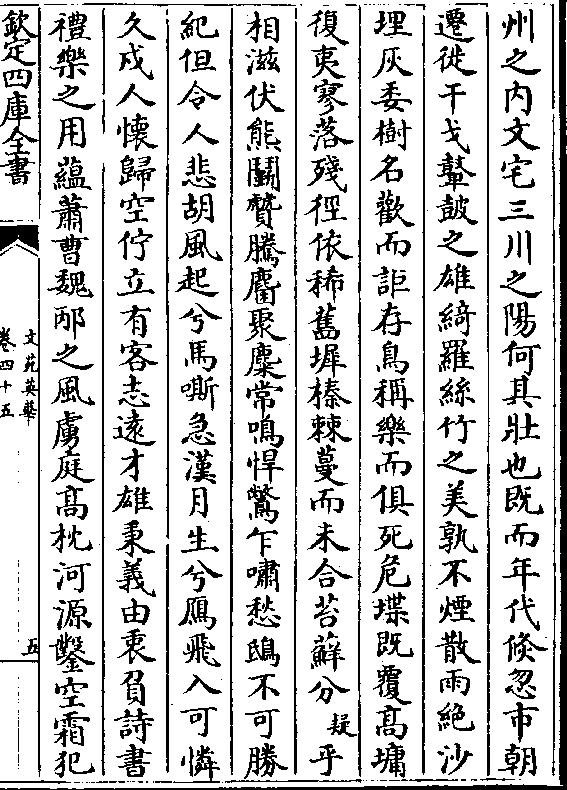 州之内文宅三川之陽何其壯也既而年代倐忽市朝
遷徙干戈鼙皷之雄綺羅絲竹之美孰不煙散雨絶沙
埋灰委樹名歡而詎存鳥稱樂而俱死危堞既覆髙墉
復夷寥落殘徑依稀舊墀榛棘蔓而未合苔蘚分疑乎
相滋伏熊鬭贙騰麏聚麋常鳴悍鷔乍嘯愁鴟不可勝
紀但令人悲胡風起兮馬嘶急漢月生兮鴈飛入可憐
久戍人懷歸空佇立有客志逺才雄秉義由衷負詩書
禮樂之用蘊蕭曹魏邴之風虜庭髙枕河源鑿空霜犯
欽定四庫全書
文苑英華
卷四十五
五